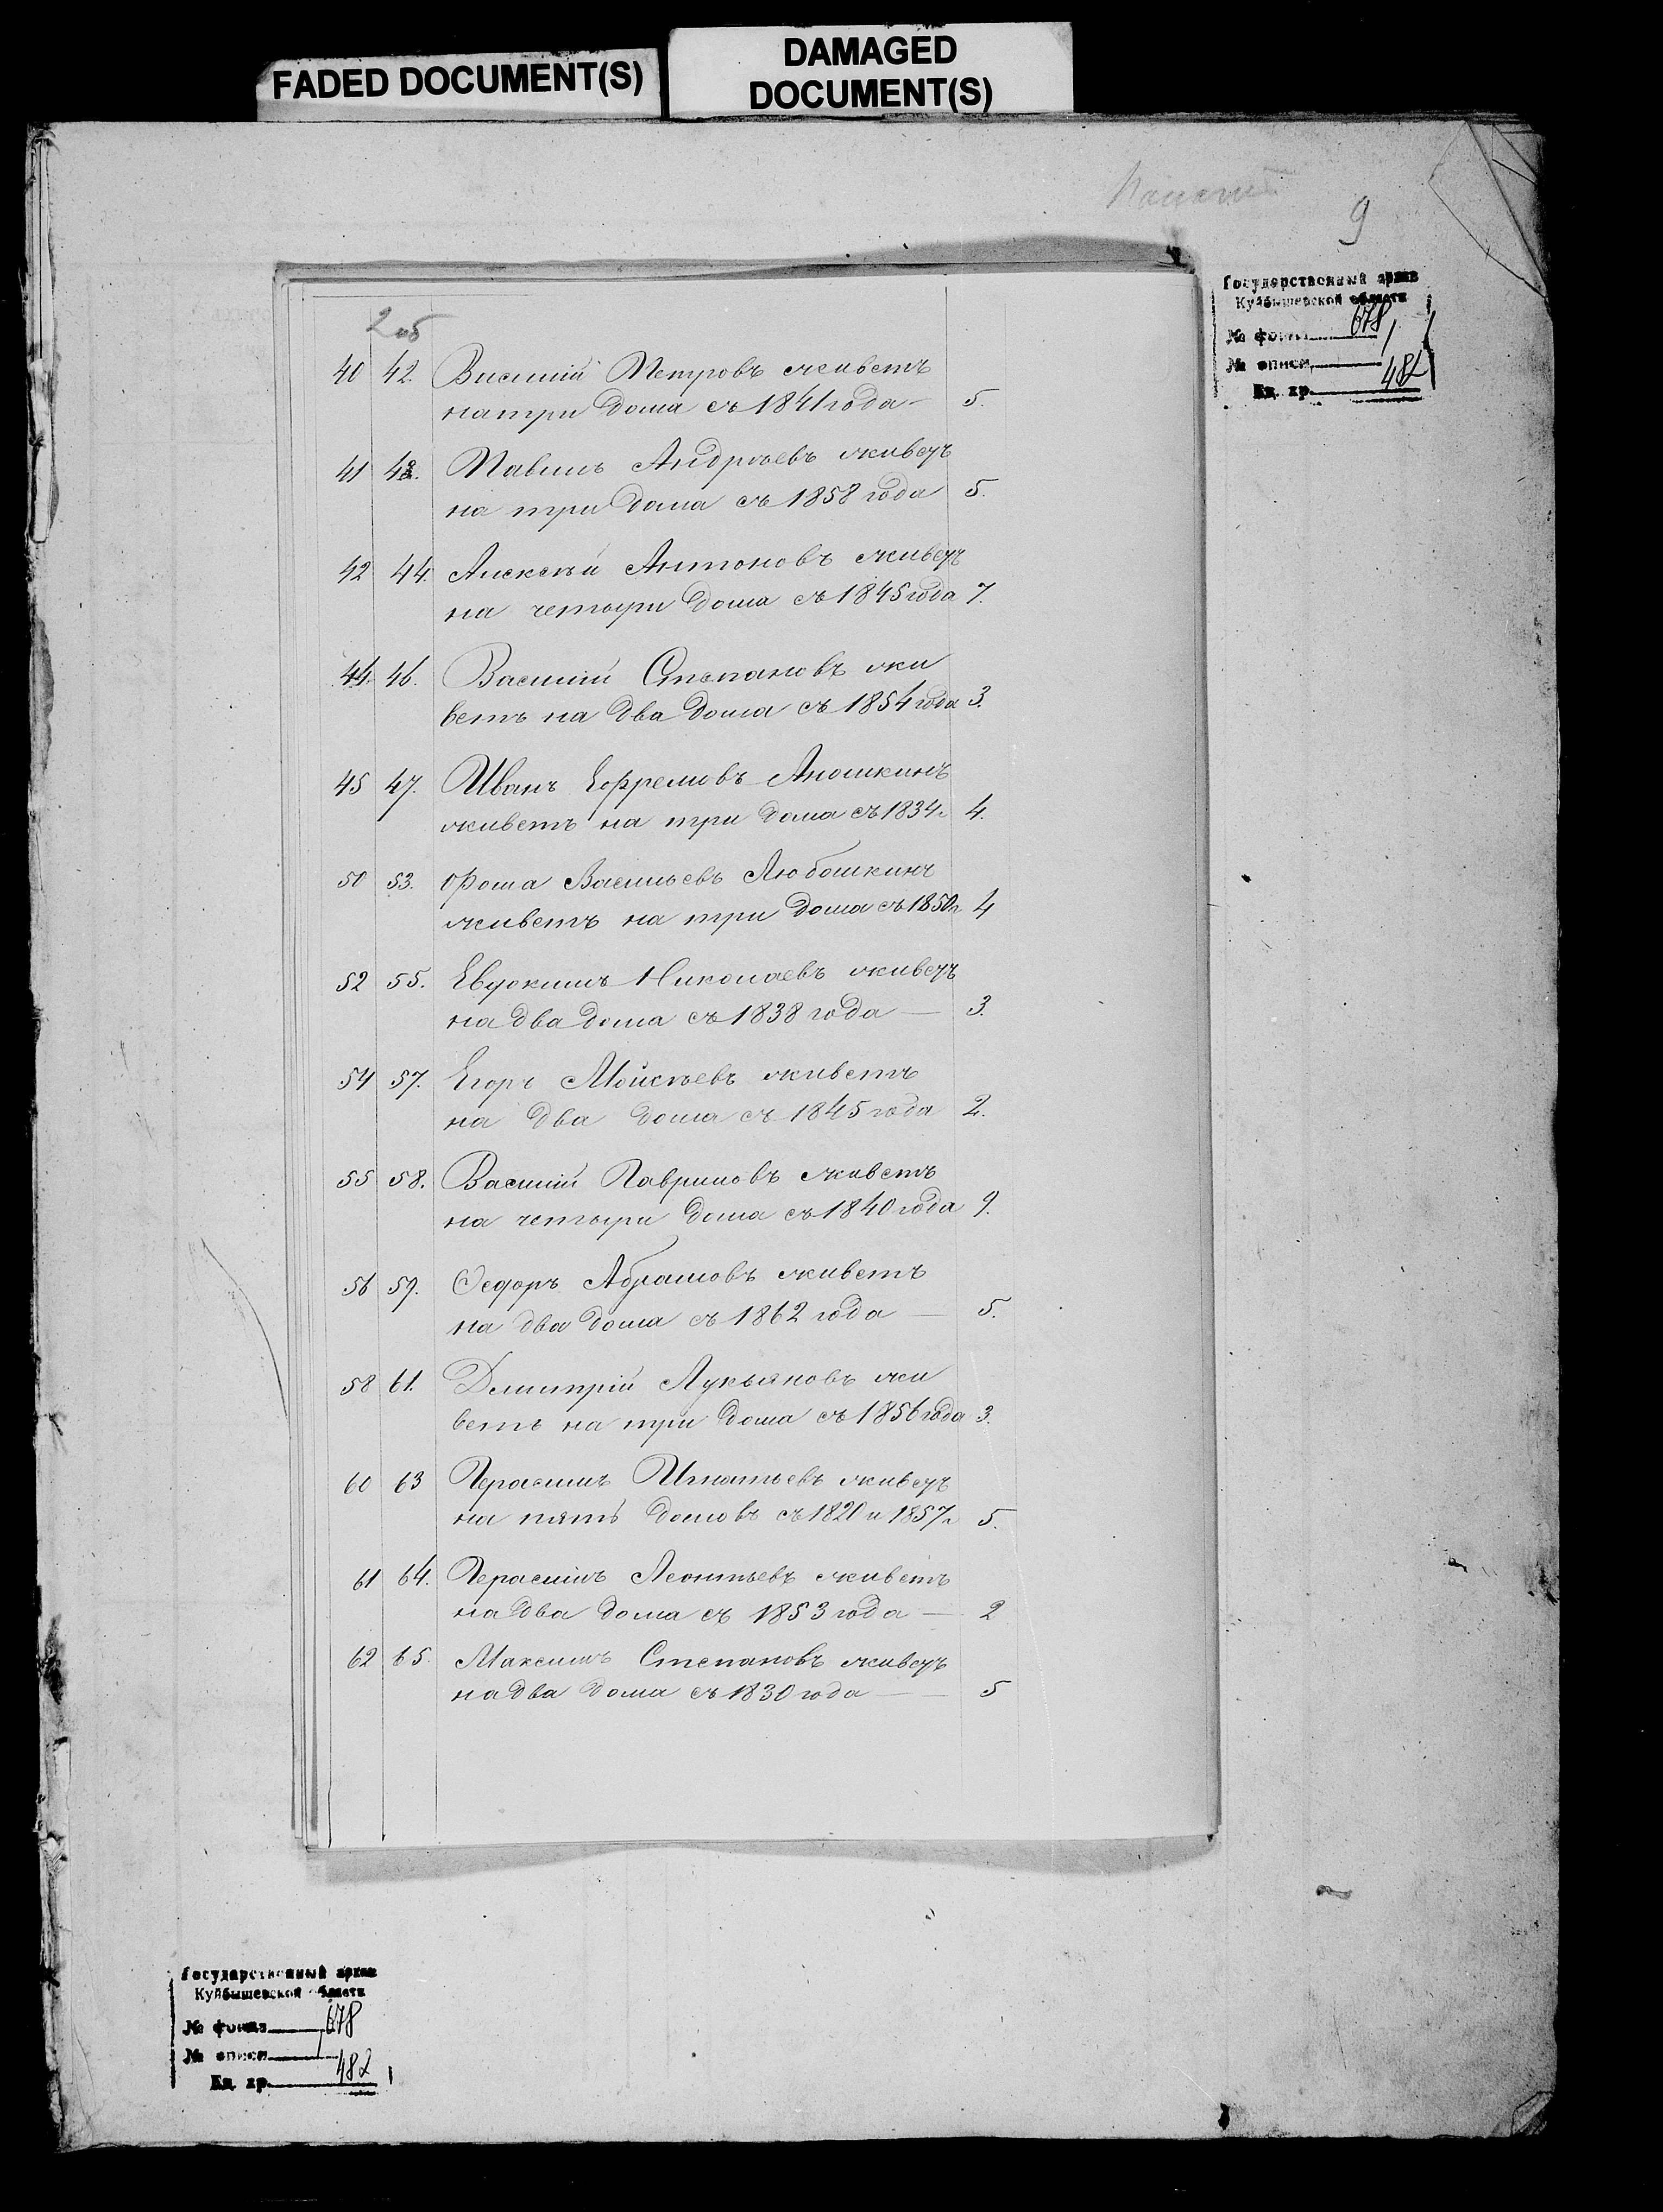 FADED DOCUMENT(S)
DAMAGED
DOCUMENT(S)
9
Государственный архив
Куйбышевской области
№ фонда 678
№ описи 1
Ед. хр. 482
2 об
40 42. Василий Петровъ живетъ
на три дома съ 1841 года — 5.
41 43. Павелъ Андреевъ живетъ
на три дома съ 1858 года 5.
42 44. Алексей Антоновъ живетъ
на четыри дома съ 1845 года 7.
44. 46. Василий Степановъ жи
ветъ на два дома съ 1854 года 3.
45 47. Иванъ Ефремовъ Аношкинъ
живетъ на три дома съ 1834 г 4.
50 53. Фома Васильевъ Любошкинъ
живетъ на три дома съ 1850 г 4
52 55. Евдокимъ Николаевъ живетъ
на два дома съ 1838 года — 3.
54 57. Егоръ Мойсѣевъ живетъ
на два дома съ 1845 года 2.
55 58. Василий Гавриловъ живетъ
на четыри дома съ 1840 года 9.
56 59. Ѳедоръ Абрамовъ живетъ
на два дома съ 1862 года — 5.
58 61. Дмитрій Лукьяновъ жи
ветъ на три дома съ 1856 года 3.
60 63 Герасимъ Игнатьевъ живетъ
на пять домовъ съ 1820 и 1857 г 5.
61 64. Герасимъ Леонтьевъ живетъ
на два дома съ 1853 года — 2
62 65. Максимъ Степановъ живетъ
на два дома съ 1830 года — 5
Государственный архив
Куйбышевской области
№ фонда 678
№ описи 1
Ед. хр. 482